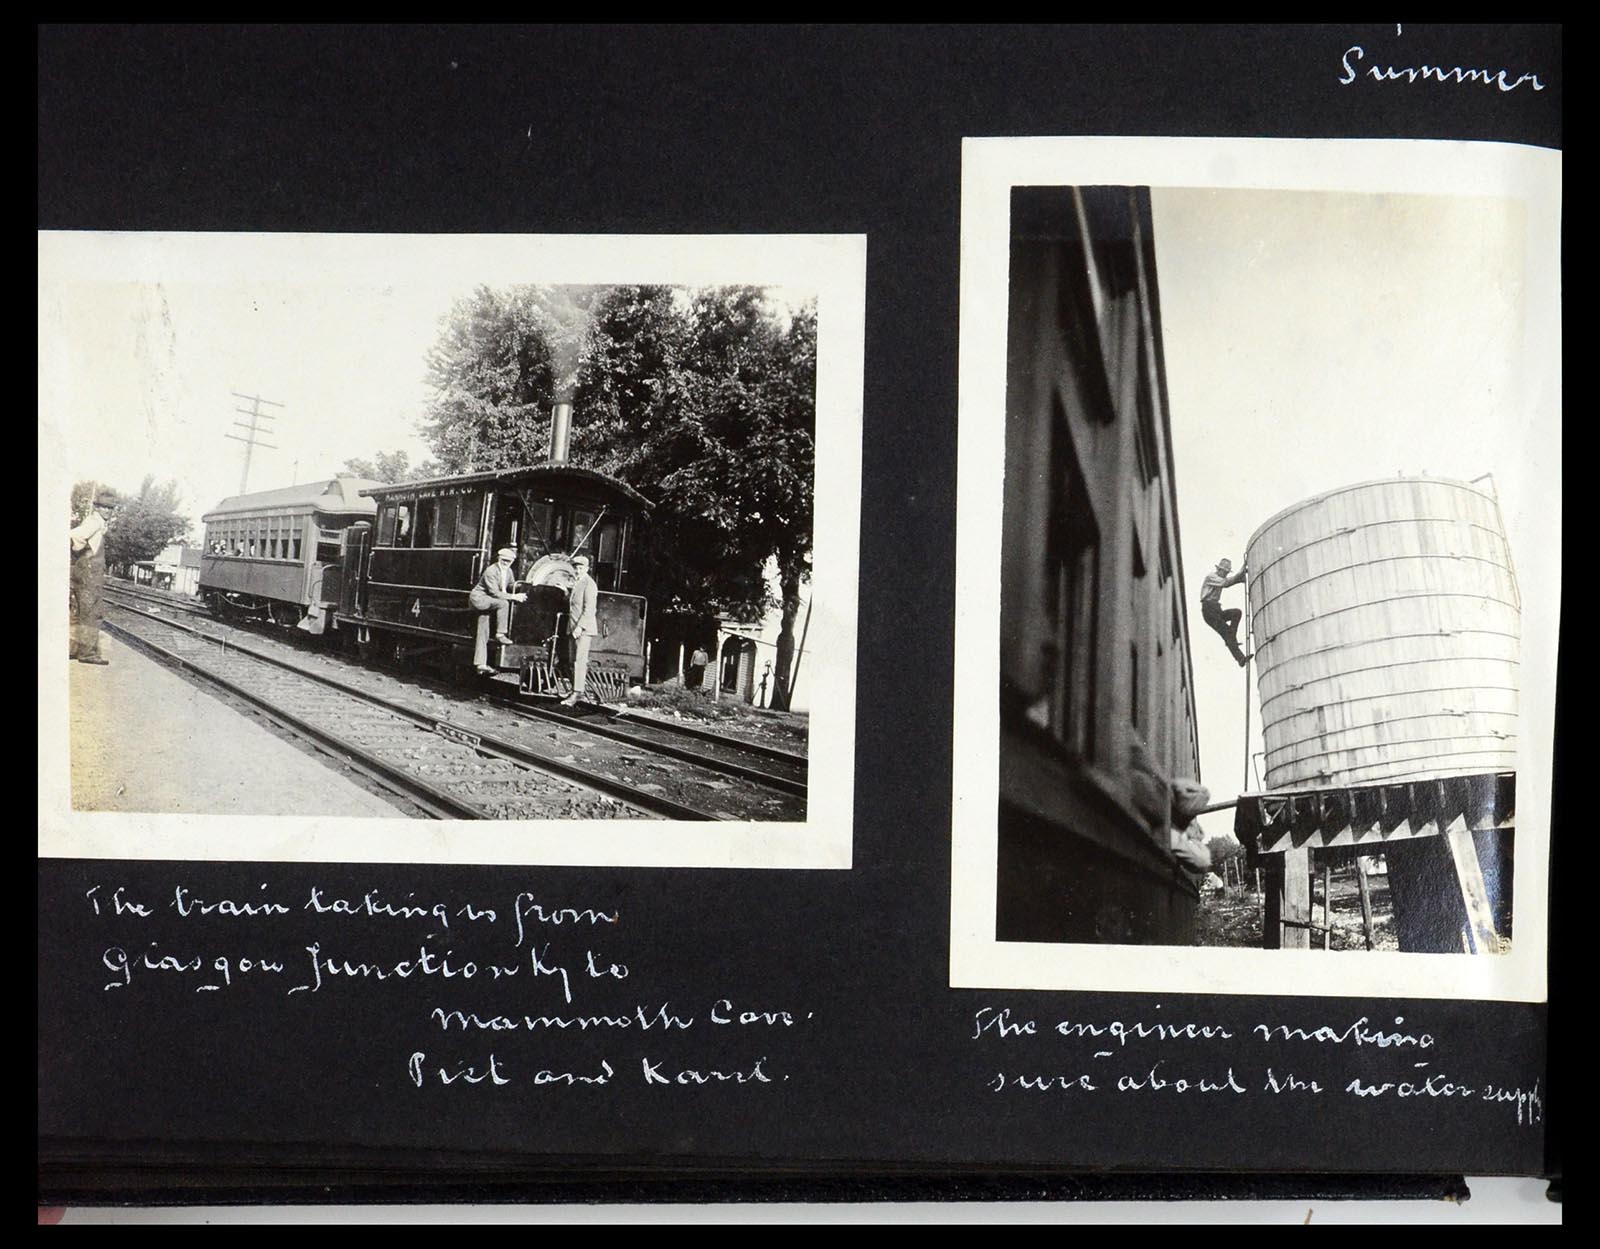 Summer
MAMMOTH CAVE R.R. CO.
4
The train taking us from
Glasgow Junction Ky to
Mammoth Cave.
Piet and Karel.
The engineer making
sure about the water supply